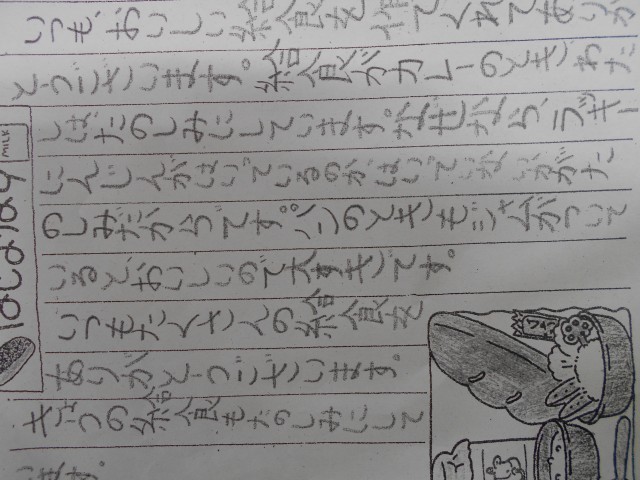 いつも、おいしい給食を作ってくれてありが
とうございます。給食がカレーのときわた
しはたのしみにしています。なぜなら、ラッキー
にんじんがはいっているのか、はいっていないかがた
のしみだからです。パンのときもジャムがついて
いると、おいしいので大すきです。
いつもたくさんの給食を
ありがとうございます。
きょうの給食もたのしみにして
います。
MILK